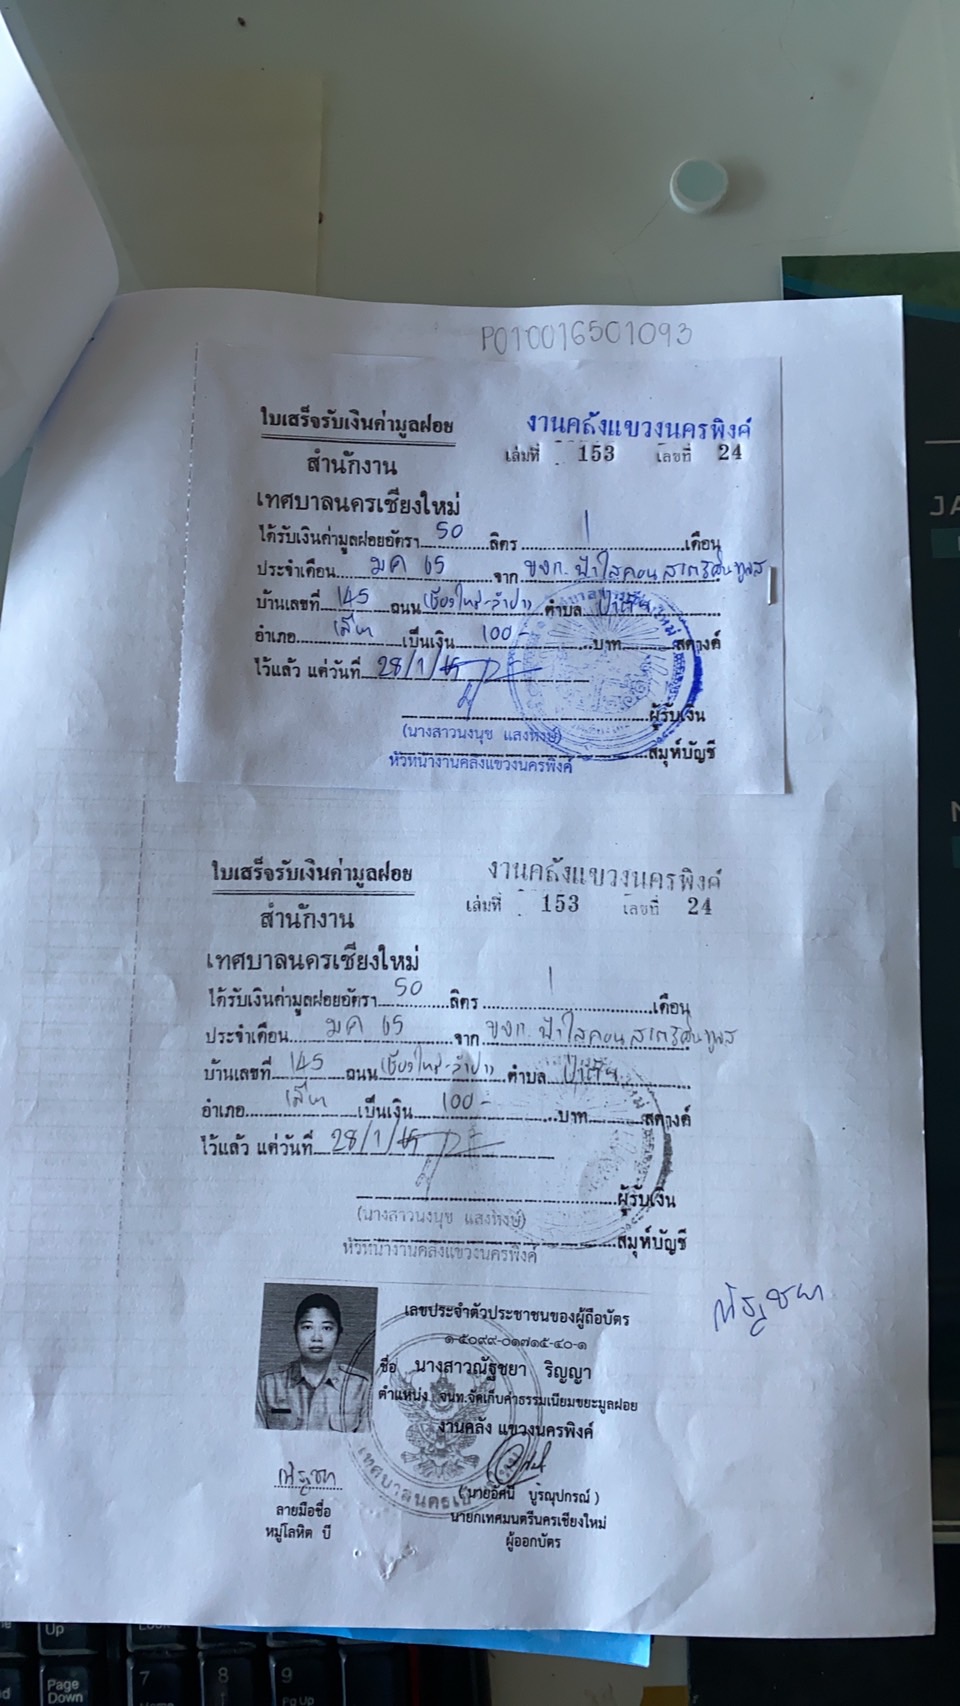 P010016501093
ใบเสร็จรับเงินค่ามูลฝอย งานคลังแขวงนครพิงค์
สำนักงาน เล่มที่ 153 เลขที่ 24
เทศบาลนครเชียงใหม่
ได้รับเงินค่ามูลฝอยอัตรา 50 ลิตร 1 เดือน
ประจำเดือน มค 65 จาก
บ้านเลขที่ 145 ถนน เชียงใหม่-ลำปาง ตำบล
อำเภอ เป็นเงิน 100 - บาท สตางค์
ไว้แล้ว แต่วันที่ 28/1/65
ผู้รับเงิน
(นางสาวนงนุช แสงหงษ์)
สมุห์บัญชี
หัวหน้างานคลังแขวงนครพิงค์
ใบเสร็จรับเงินค่ามูลฝอย งานคลังแขวงนครพิงค์
สำนักงาน เล่มที่ 153 เลขที่ 24
เทศบาลนครเชียงใหม่
ได้รับเงินค่ามูลฝอยอัตรา 50 ลิตร 1 เดือน
ประจำเดือน มค 65 จาก
บ้านเลขที่ 145 ถนน เชียงใหม่-ลำปาง ตำบล
อำเภอ เป็นเงิน 100 - บาท สตางค์
ไว้แล้ว แต่วันที่ 28/1/65
ผู้รับเงิน
(นางสาวนงนุช แสงหงษ์)
สมุห์บัญชี
หัวหน้างานคลังแขวงนครพิงค์
ณัฐชยา
เลขประจำตัวประชาชนของผู้ถือบัตร
๑-๕๐๙๙-๐๑๗๑๕-๔๐-๑
ชื่อ นางสาวณัฐชยา ริญญา
ตำแหน่ง จนท.จัดเก็บค่าธรรมเนียมขยะมูลฝอย
งานคลัง แขวงนครพิงค์
ณัฐชยา
ลายมือชื่อ
หมู่โลหิต บี
(นายอัศนี บูรณุปกรณ์)
นายกเทศมนตรีนครเชียงใหม่
ผู้ออกบัตร
Up
Page
Down
7
8
9
Pg Up